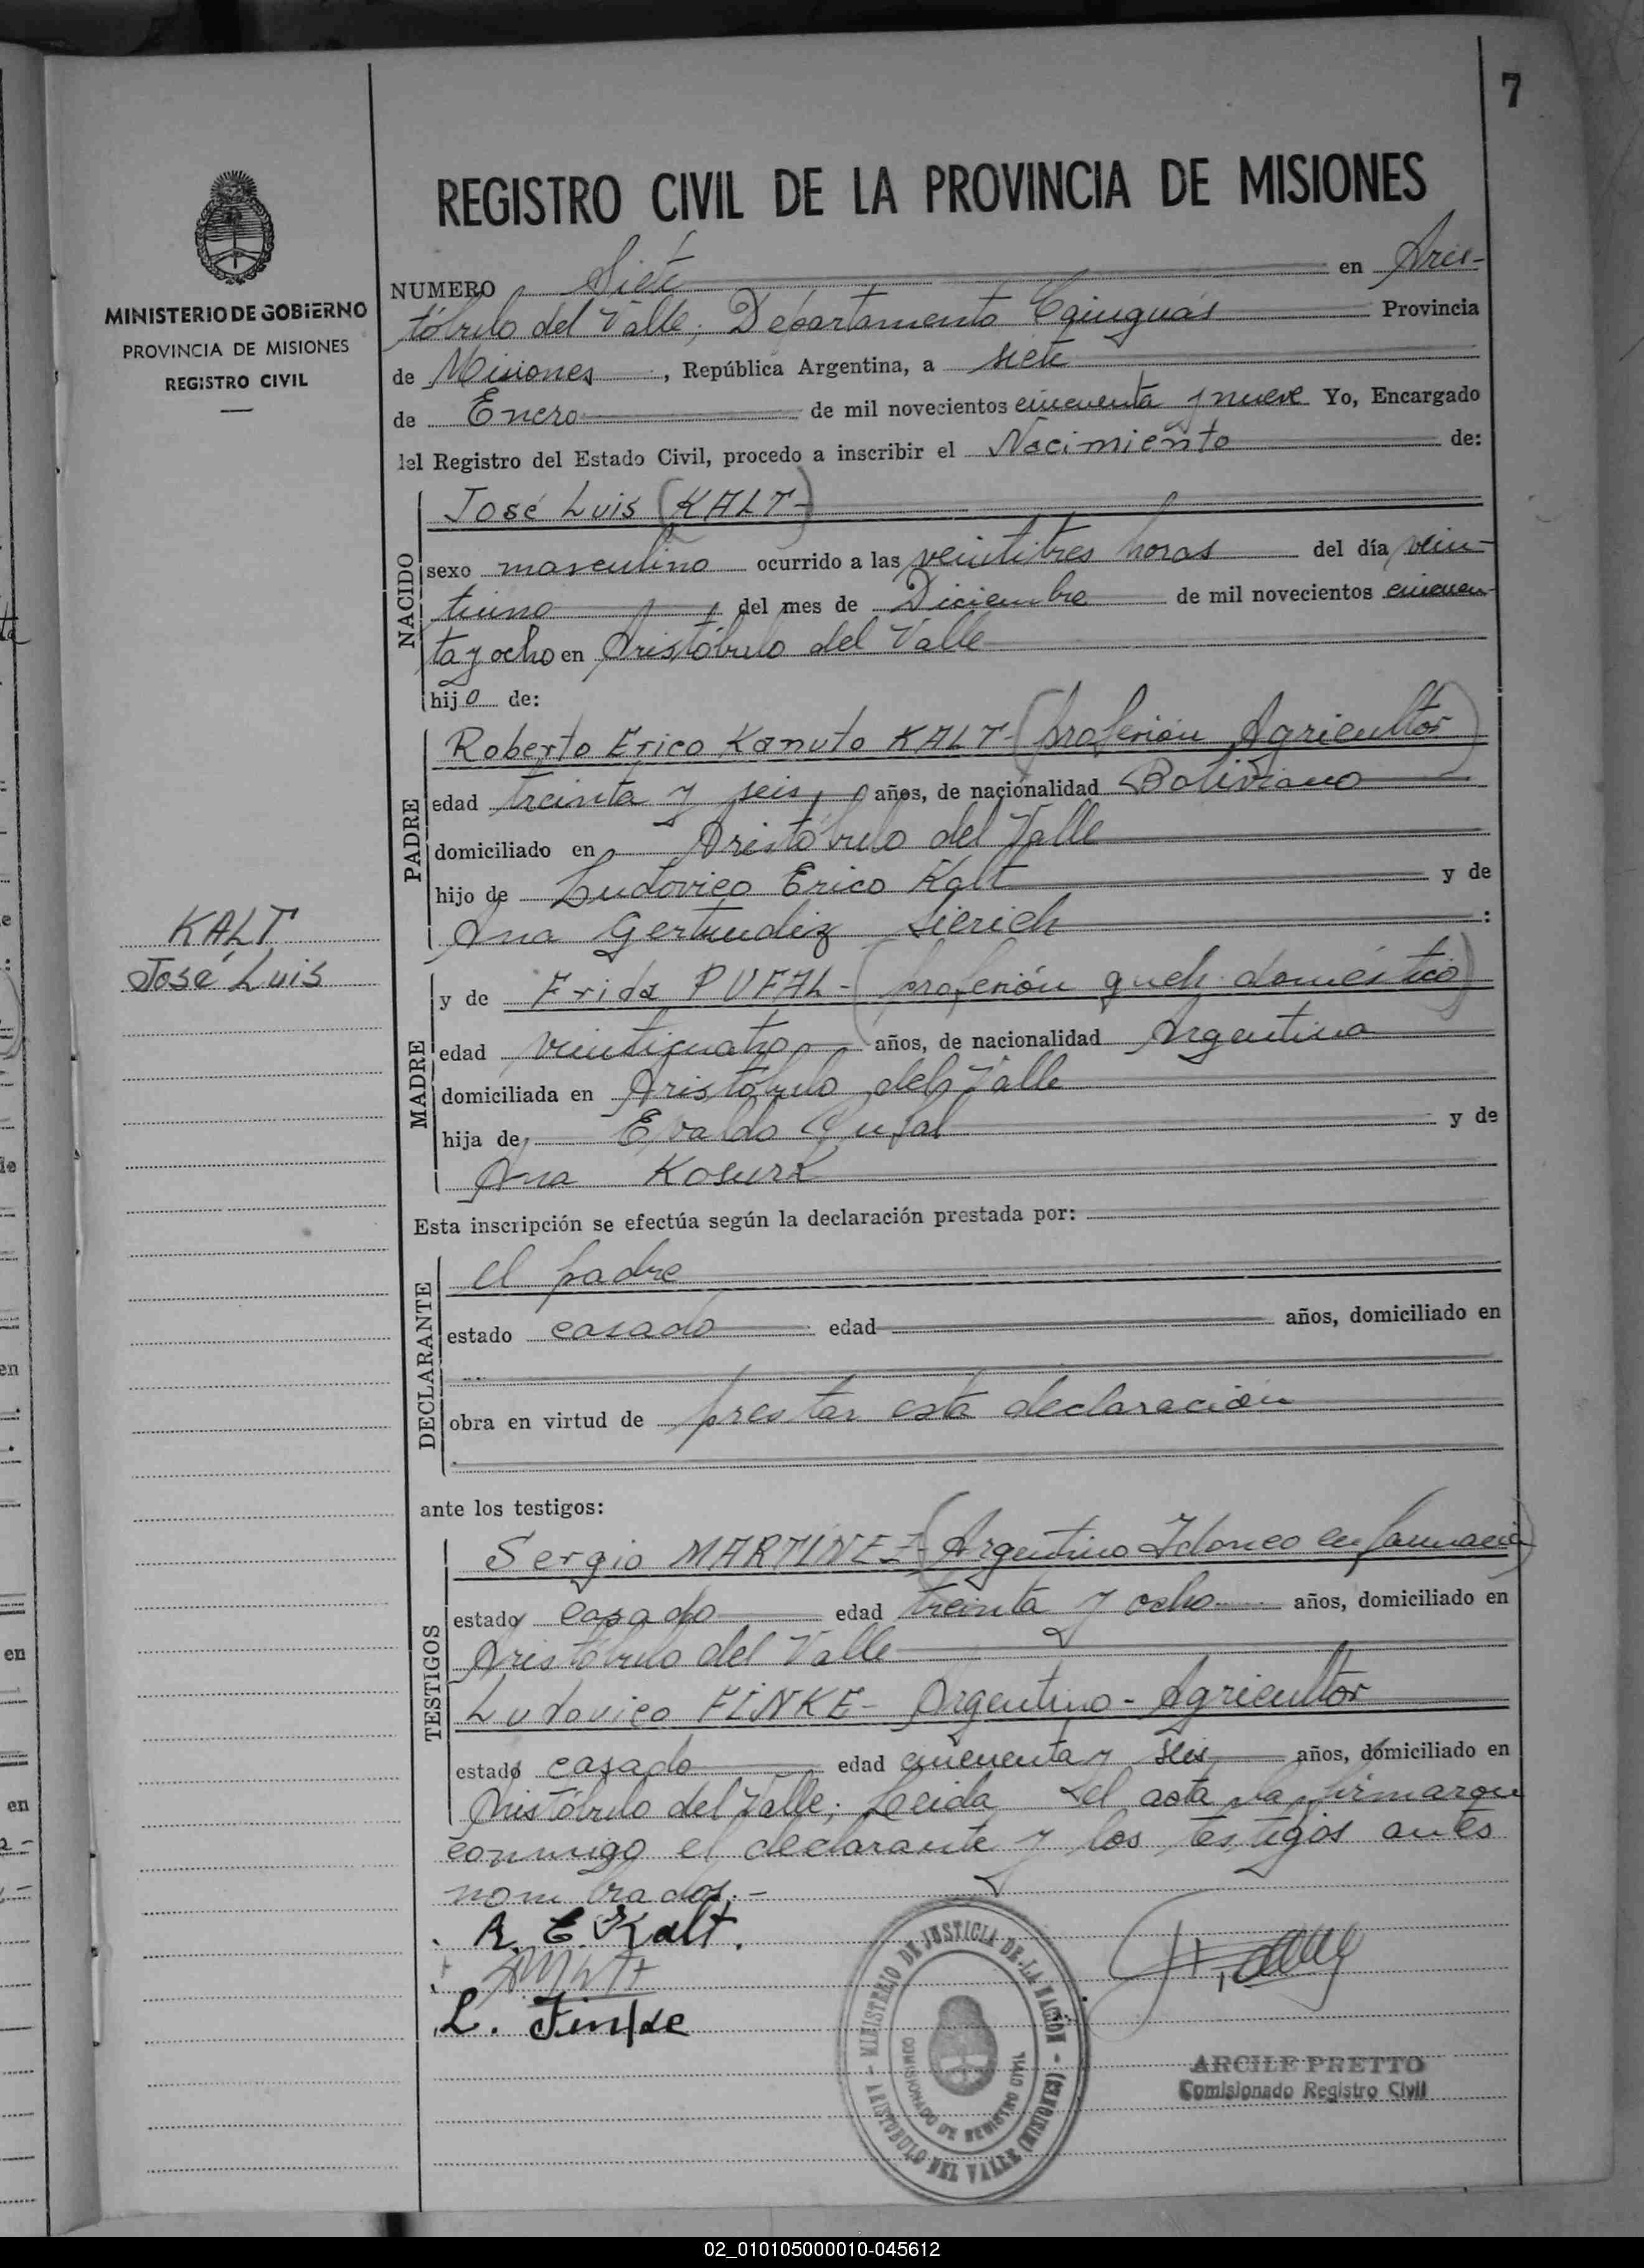 7
REGISTRO CIVIL DE LA PROVINCIA DE MISIONES
MINISTERIO DE GOBIERNO
PROVINCIA DE MISIONES
REGISTRO CIVIL
NUMERO Siete en Aris-
tóbulo del Valle, Departamento Cainguás Provincia
de Misiones, República Argentina, a siete
de Enero de mil novecientos cincuenta y nueve Yo, Encargado
del Registro del Estado Civil, procedo a inscribir el Nacimiento de:
NACIDO
José Luis (KALT-)
sexo masculino ocurrido a las veintitres horas del día vein-
tiuno del mes de Diciembre de mil novecientos cincuen-
ta y ocho en Aristóbulo del Valle
hijo de:
PADRE
Roberto Erico Kanuto KALT- (profesión Agricultor)
edad treinta y seis, años, de nacionalidad Boliviano
domiciliado en Aristóbulo del Valle
hijo de Ludovico Erico Kalt y de
Ana Gertrudiz Sierich :
KALT
José Luis
MADRE
y de Frida PUFAL- (profesión queh. doméstico)
edad veinticuatro años, de nacionalidad Argentina
domiciliada en Aristóbulo del Valle
hija de, Evaldo Pufal y de
Ana Kosurk
Esta inscripción se efectúa según la declaración prestada por:
DECLARANTE
el padre
estado casado edad años, domiciliado en
obra en virtud de prestar esta declaración
ante los testigos:
TESTIGOS
Sergio MARTINEZ- (Argentino Idoneo en farmacia)
estado casado edad treinta y ocho años, domiciliado en
Aristóbulo del Valle
Ludovico FINKE- Argentino- Agricultor
estado casado edad cincuenta y seis años, domiciliado en
Aristóbulo del Valle; Leida el acta la firmaron
conmigo el declarante y los testigos antes
nombrados.-
R. E. Kalt.
L. Finke
MINISTERIO DE JUSTICIA DE LA NACION - ARISTOBULO DEL VALLE (MISIONES) -
COMISIONADO DE REGISTRO CIVIL
ARCILE PRETTO
Comisionado Registro Civil
02_010105000010-045612